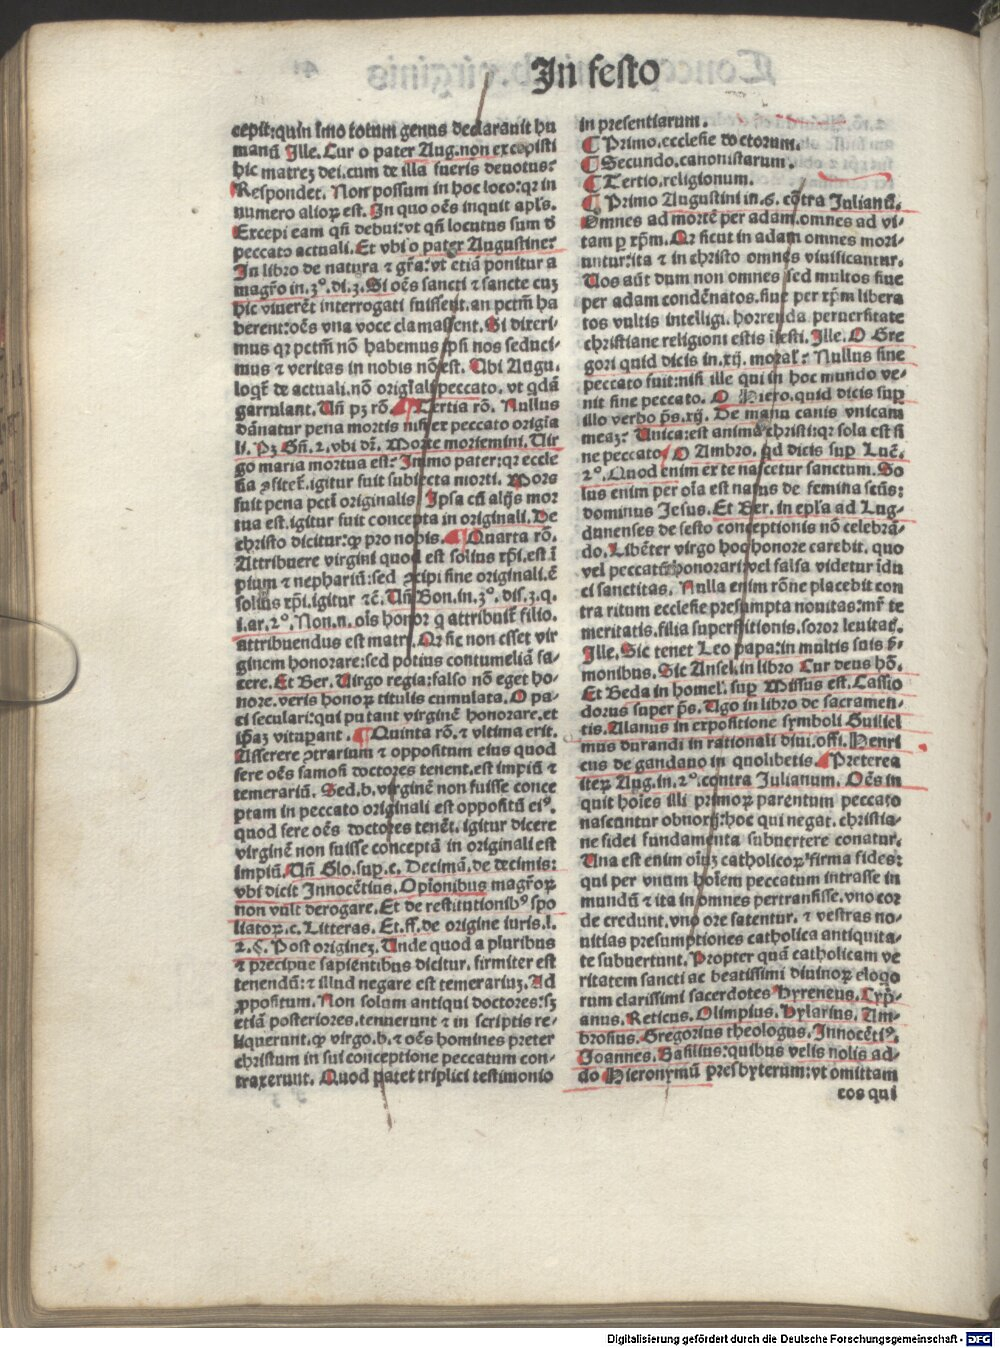 In festo
cepit:quin īmo totum genus declarauit hu
manū Ille. Cur o pater Aug.non excepisti
hic matreʒ dei.cum de illa fueris deuotus?
Respondet. Non possum in hoc loco:qꝛ in
numero alioꝝ est. In quo oēs inquit apl's.
Excepi eam qn̄ debui:vt qn̄ locutus sum ð
peccato actuali. Et vbi o pater Augustine?
In libro de natura ⁊ gr̄a:vt etiā ponitur a
magr̄o in.3°.di.3. Si oēs sancti ⁊ sancte cuʒ
hic viuerēt interrogati fuissent.an pctm̄ ha
berent:oēs vna voce clamassent. Si dixeri-
mus qꝛ pctm̄ nō habemus ipsi nos seduci-
mus ⁊ veritas in nobis nō est. Ubi Augu.
loqr̄ de actuali.nō origīali peccato. vt qdā
garrulant. Un̄ pʒ rō. ¶ Tertia rō. Nullus
dānatur pena mortis nisi ex peccato origīa
li. Pʒ Gn̄.2.vbi dr̄. Morte moriemini. Uir
go maria mortua est? Immo pater:qꝛ eccle
sia ꝯfitet̄.igitur fuit subiecta morti. Mors
fuit pena pcti originalis Ipsa cū alijs mor
tua est.igitur fuit concepta in originali. De
christo dicitur:ꝙ pro nobis. ¶ Quarta rō.
Attribuere virgini quod est solius xp̄i.est ī
pium ⁊ nephariū:sed ꝯcipi sine originali.ē
solius xp̄i.igitur ⁊c̄. Un̄ Bon.in.3°.dis.3.q.
1.ar.2°. Non.n.ois honor q̄ attribuit̄ filio.
attribuendus est matri. Qꝛ sic non esset vir
ginem honorare:sed potius contumeliā fa-
cere. Et Ber. Uirgo regia:falso nō eget ho-
nore.veris honoꝝ titulis cumulata. O pa-
ci seculari:qui putant virginē honorare.et
ip̄aʒ vituꝑant. ¶ Quinta rō.⁊ vltima erit.
Asserere ꝯtrarium ⁊ oppositum eius quod
fere oēs famosi doctores tenent.est impiū ⁊
temerariū. Sed.b.virginē non fuisse conce
ptam in peccato originali est oppositū ei⁹.
quod fere oēs doctores tenēt. igitur dicere
virginē non fuisse conceptā in originali est
impiū. Un̄ Glo.suꝑ.c. Decimā.de decimis:
vbi dicit Innocētius. Opīonibus magr̄oꝝ
non vult derogare. Et de restitutionib⁹ spo
liatoꝝ.c. Litteras. Et.ff.de origine iuris.l.
2.§. Post origineʒ. Unde quod a pluribus
⁊ precipue sapientibus dicitur. firmiter est
tenendū:⁊ illud negare est temerariuʒ. Ad
ꝓpositum. Non solum antiqui doctores:sʒ
etiā posteriores.tenuerunt ⁊ in scriptis re-
liquerunt.ꝙ virgo.b.⁊ oēs homines preter
christum in sui conceptione peccatum con-
traxerunt. Quod patet triplici testimonio
in presentiarum.
¶ Primo.ecclesie doctorum.
¶ Secundo.canonistarum.
¶ Tertio.religionum.
¶ Primo Augustini in.6. cōtra Julianū.
Omnes ad mortē per adam.omnes ad vi-
tam ꝑ xp̄m. Qꝛ sicut in adam omnes mori-
untur:ita ⁊ in christo omnes viuificantur.
Uos aūt dum non omnes sed multos siue
per adam condēnatos.siue per xp̄m libera
tos vultis intelligi. horrenda peruersitate
christiane religioni estis īfesti. Ille. O Gre
gori quid dicis in.xij. moral? Nullus sine
peccato fuit:nisi ille qui in hoc mundo ve-
nit sine peccato. O Hiero.quid dicis suꝑ
illo verbo ps.xij. De manu canis vnicam
meaʒ? Unica:est anima christi:qꝛ sola est si
ne peccato. O Ambro. qd dicis suꝑ Luc̄.
2°. Quod enim ex te nascetur sanctum. So
lus enim per oīa est natus de femina sctūs:
dominus Jesus. Et Ber. in epl'a ad Lug-
dunenses de festo conceptionis nō celebrā-
do. Libēter virgo hoc honore carebit. quo
vel peccatū honorari:vel falsa videtur īdu
ci sanctitas. Nulla enim rōne placebit con
tra ritum ecclesie presumpta nouitas:mr̄ te
meritatis.filia superstitionis.soror leuitat̄.
Ille. Sic tenet Leo papa:in multis suis s̄-
monibus. Sic Ansel.in libro Cur deus hō.
Et Beda in homel̄. suꝑ Missus est. Cassio
dorus super ps. Ugo in libro de sacramen-
tis. Alanus in expositione symboli Guiliel
mus durandi in rationali diui.offi. Henri
cus de gandauo in quolibetis. ¶ Preterea
iteꝝ Aug.in.2°.contra Julianum. Oēs in
quit hoīes illi primoꝝ parentum peccato
nascuntur obnoxij:hoc qui negat. christia-
ne fidei fundamenta subuertere conatur.
Una est enim oīuʒ catholicoꝝ firma fides:
qui per vnum hoīem peccatum intrasse in
mundū ⁊ ita in omnes pertransisse. vno cor
de credunt.vno ore fatentur. ⁊ vestras no-
uitias presumptiones catholica antiquita-
te subuertunt. Propter quā catholicam ve
ritatem sancti ac beatissimi diuinoꝝ eloqo
rum clarissimi sacerdotes Hyreneus. Cypri-
anus. Reticus. Olimpius. Hylarius. Am-
brosius. Gregorius theologus. Innocēti⁹.
Joannes. Basilius:quibus velis nolis ad-
do Hieronymū presbyterum:vt omittam
eos qui
Digitalisierung gefördert durch die Deutsche Forschungsgemeinschaft - DFG